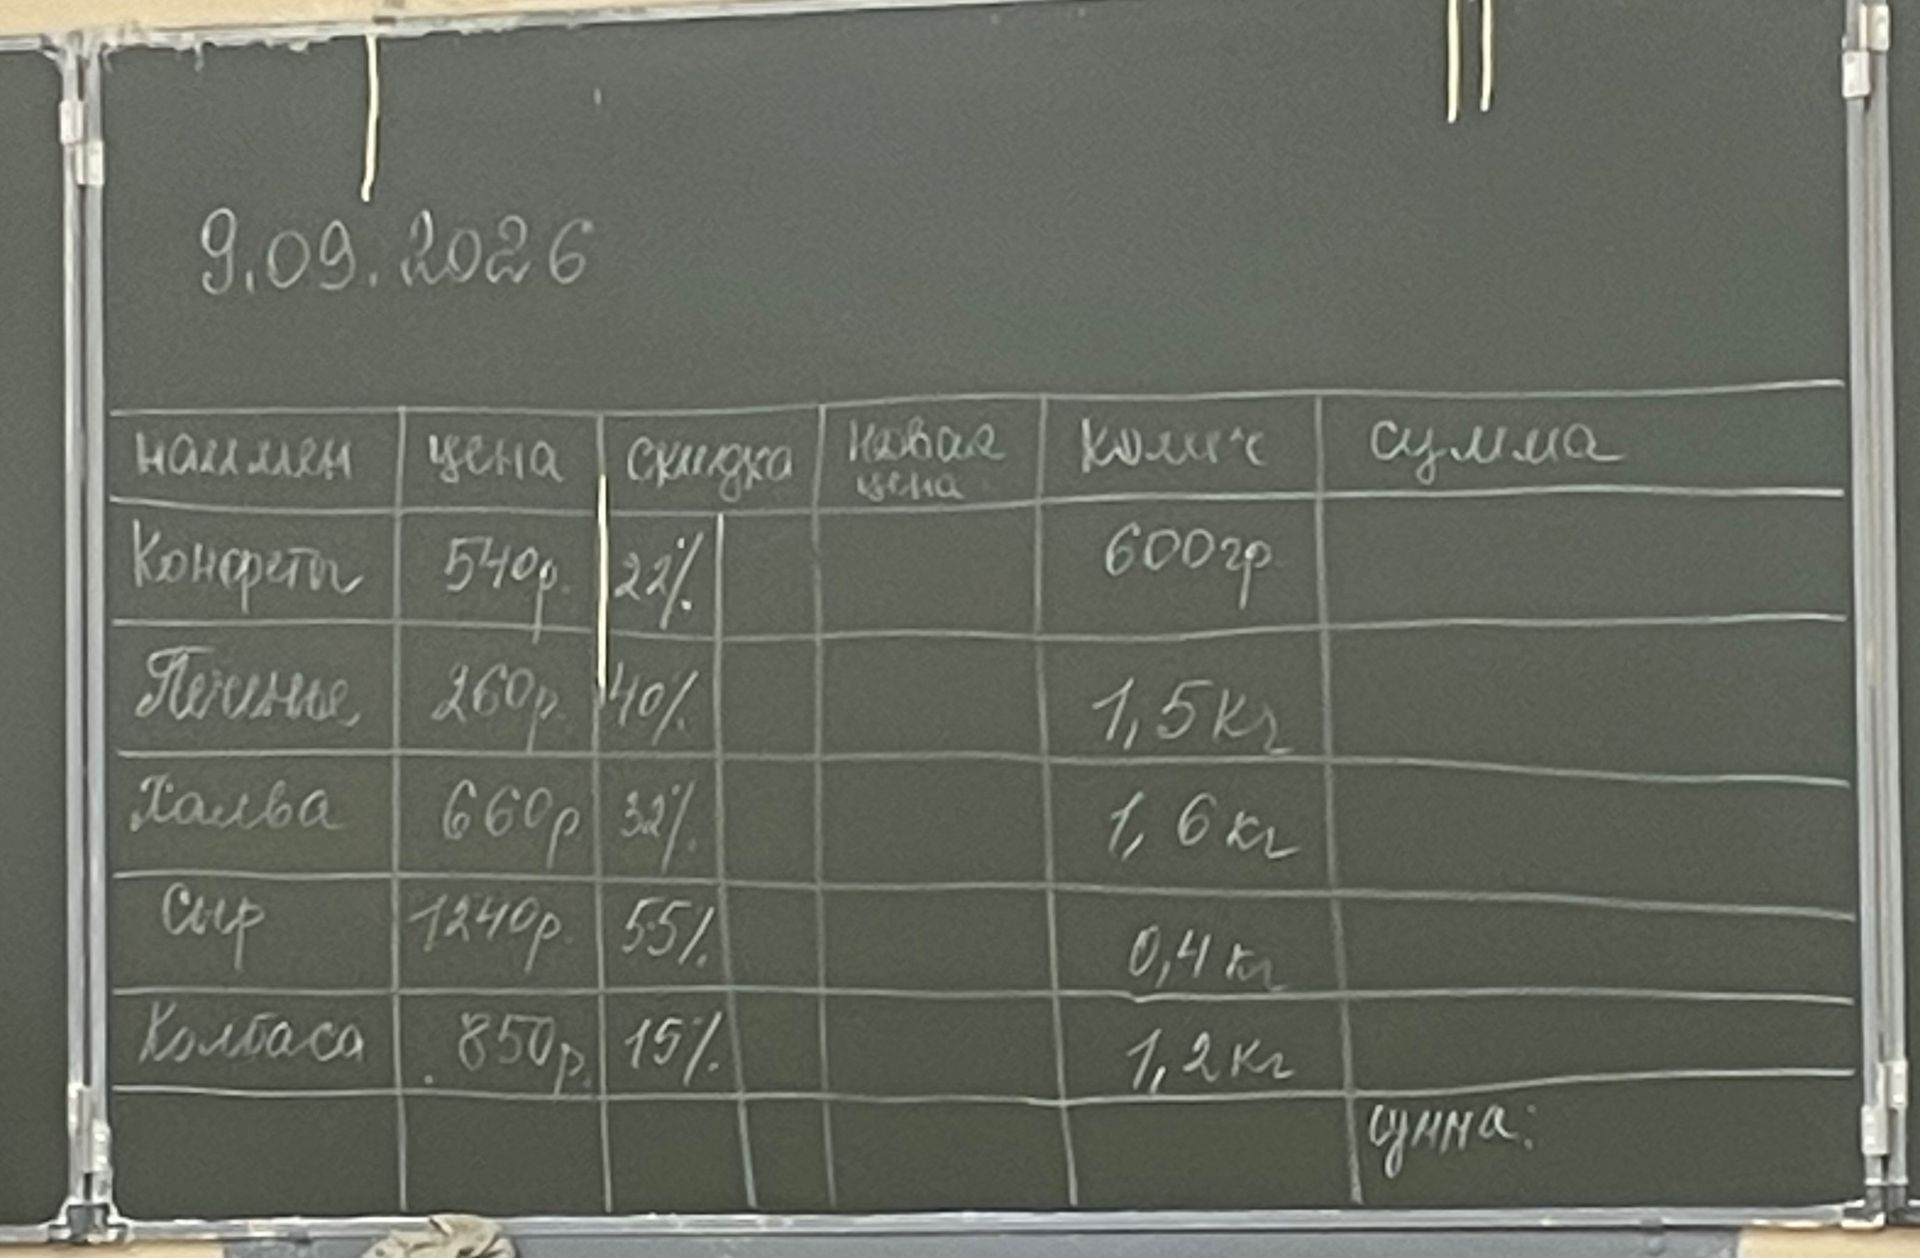 9.09.2026
наимен цена скидка новая цена колич сумма
Конфеты 540р. 22% 600гр
Печенье 260р. 40% 1,5кг
Халва 660р 32% 1,6кг
Сыр 1240р. 55% 0,4кг
Колбаса 850р. 15% 1,2кг
сумма: